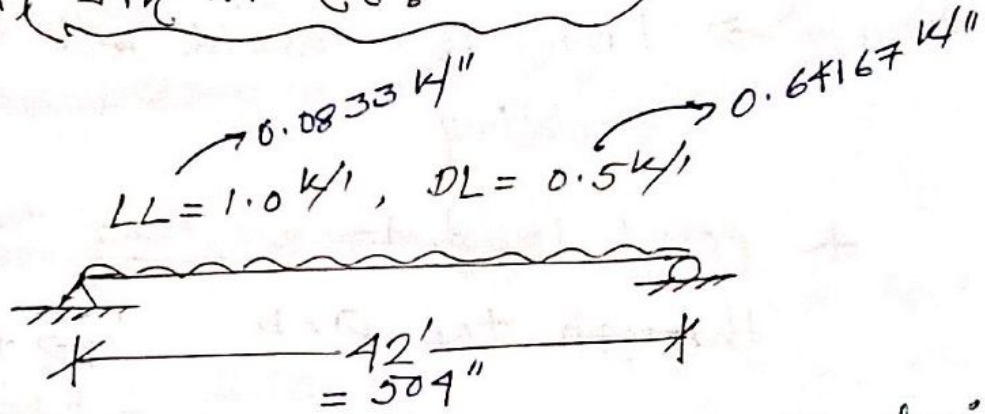 0.0833 k/"
0.64167 k/"
LL = 1.0 k/', DL = 0.5 k/'
42'
= 504"